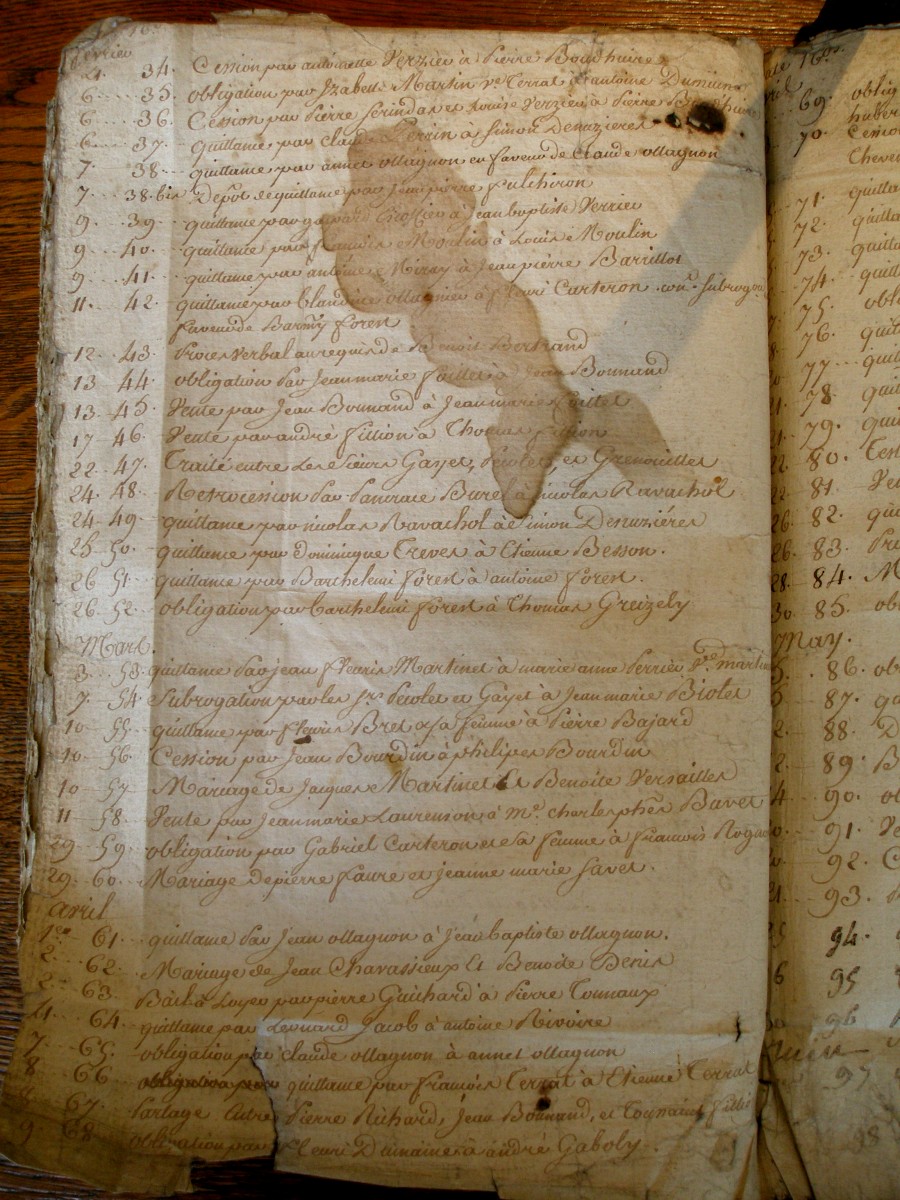 fevrier
4. 34. Cession par antoinette Verzier à Pierre Bouchuire
6 .... 35. obligation par Izabelle Martin ve. Terrat à antoine Dumiun
6 .... 36. Cession par Pierre et Louise Verzier à Pierre
6 .... 37. quittance par Claude Perrin à Simon Denuzieres
7 38 quittance par annet ollagnon en faveur de Claude ollagnon
7 . 38 bis Depôt de quittance par Jean pierre fulchiron
9 .. 39 .. quittance par à Jean baptiste Verrier
9 ... 40. quittance par francois Moulin à Louis Moulin
9 ... 41. quittance par antoine à Jean pierre Barillot
11 . 42. quittance par Claudine ollagnier à fleuri Carteron con. subrogon.
faveur de Barmy foren
12 .. 43. Proces Verbal au requis de Benoit Bertrand
13 44. obligation par Jean marie faillet à Jean Bonnand
13 .. 45. Vente par Jean Bonnand à Jean marie faillet
17 - 46. Vente par andré fillion à Thomas fillion
22 .. 47. Traité entre les Sieurs Gayet, Peiolet, et Grenouillet
24. 48. Retrocession par Pancrace Burel à nicolas Ravachol
24 .. 49. quittance par nicolas Ravachol à Simon Denuziéres
25 . 50. quittance par Dominique Treves à Etienne Besson.
26 51. quittance par Barthelemi foren à antoine foren.
26. 52. obligation par barthelemi foren à Thomas Greizely
Mars.
3 .. 53. quittance par jean fleuris Martinet à marie anne Perrier ve. martin
7. 54. Subrogation par les srs. Peiolet et Gayet à Jean marie Biolet
10 .. 55. quittance par fleuris Bret et sa femme à Pierre Bajard
10. 56. Cession par Jean Bourdin à philipes Bourdin
10 57 Mariage de Jacques Martinet Et Benoite Versailles
11 . 58. Vente par Jean marie Laurenson à me. charles Bavet
29 .. 59. obligation par Gabriel Carteron et sa femme à francois
29. 60. Mariage de pierre faure et jeanne marie favet.
avril
1er 61. quittance par Jean ollagnon à jean baptiste ollagnon.
2. 62. Mariage de Jean Chavassieux Et Benoite Denis
2. 63. Bail à Loyer par pierre Guichard à Pierre Tonnaux
4. 64. quittance par Leonard Jacob à antoine Rivoire
7. 65. obligation par claude ollagnon à annet ollagnon
8 66 quittance par francois Terrat à Etienne Terrat
8 67. Partage Entre Pierre Richard, jean Bonnand, et
9 68. obligation par fleuri Dumaine à andré Gaboly.
69. oblig
70. Cessio
71. quitta
72. quitta
73. quitta
74. quitta
75. obli
76. quit
77. quit
78. quit
79. qui
80.
81. Ve
82. qui
83.
84. M
85. ob
May.
86. ob
87. qu
88. D
89. B
90. ob
91. Ve
92. C
93.
94.
95
96
97
98